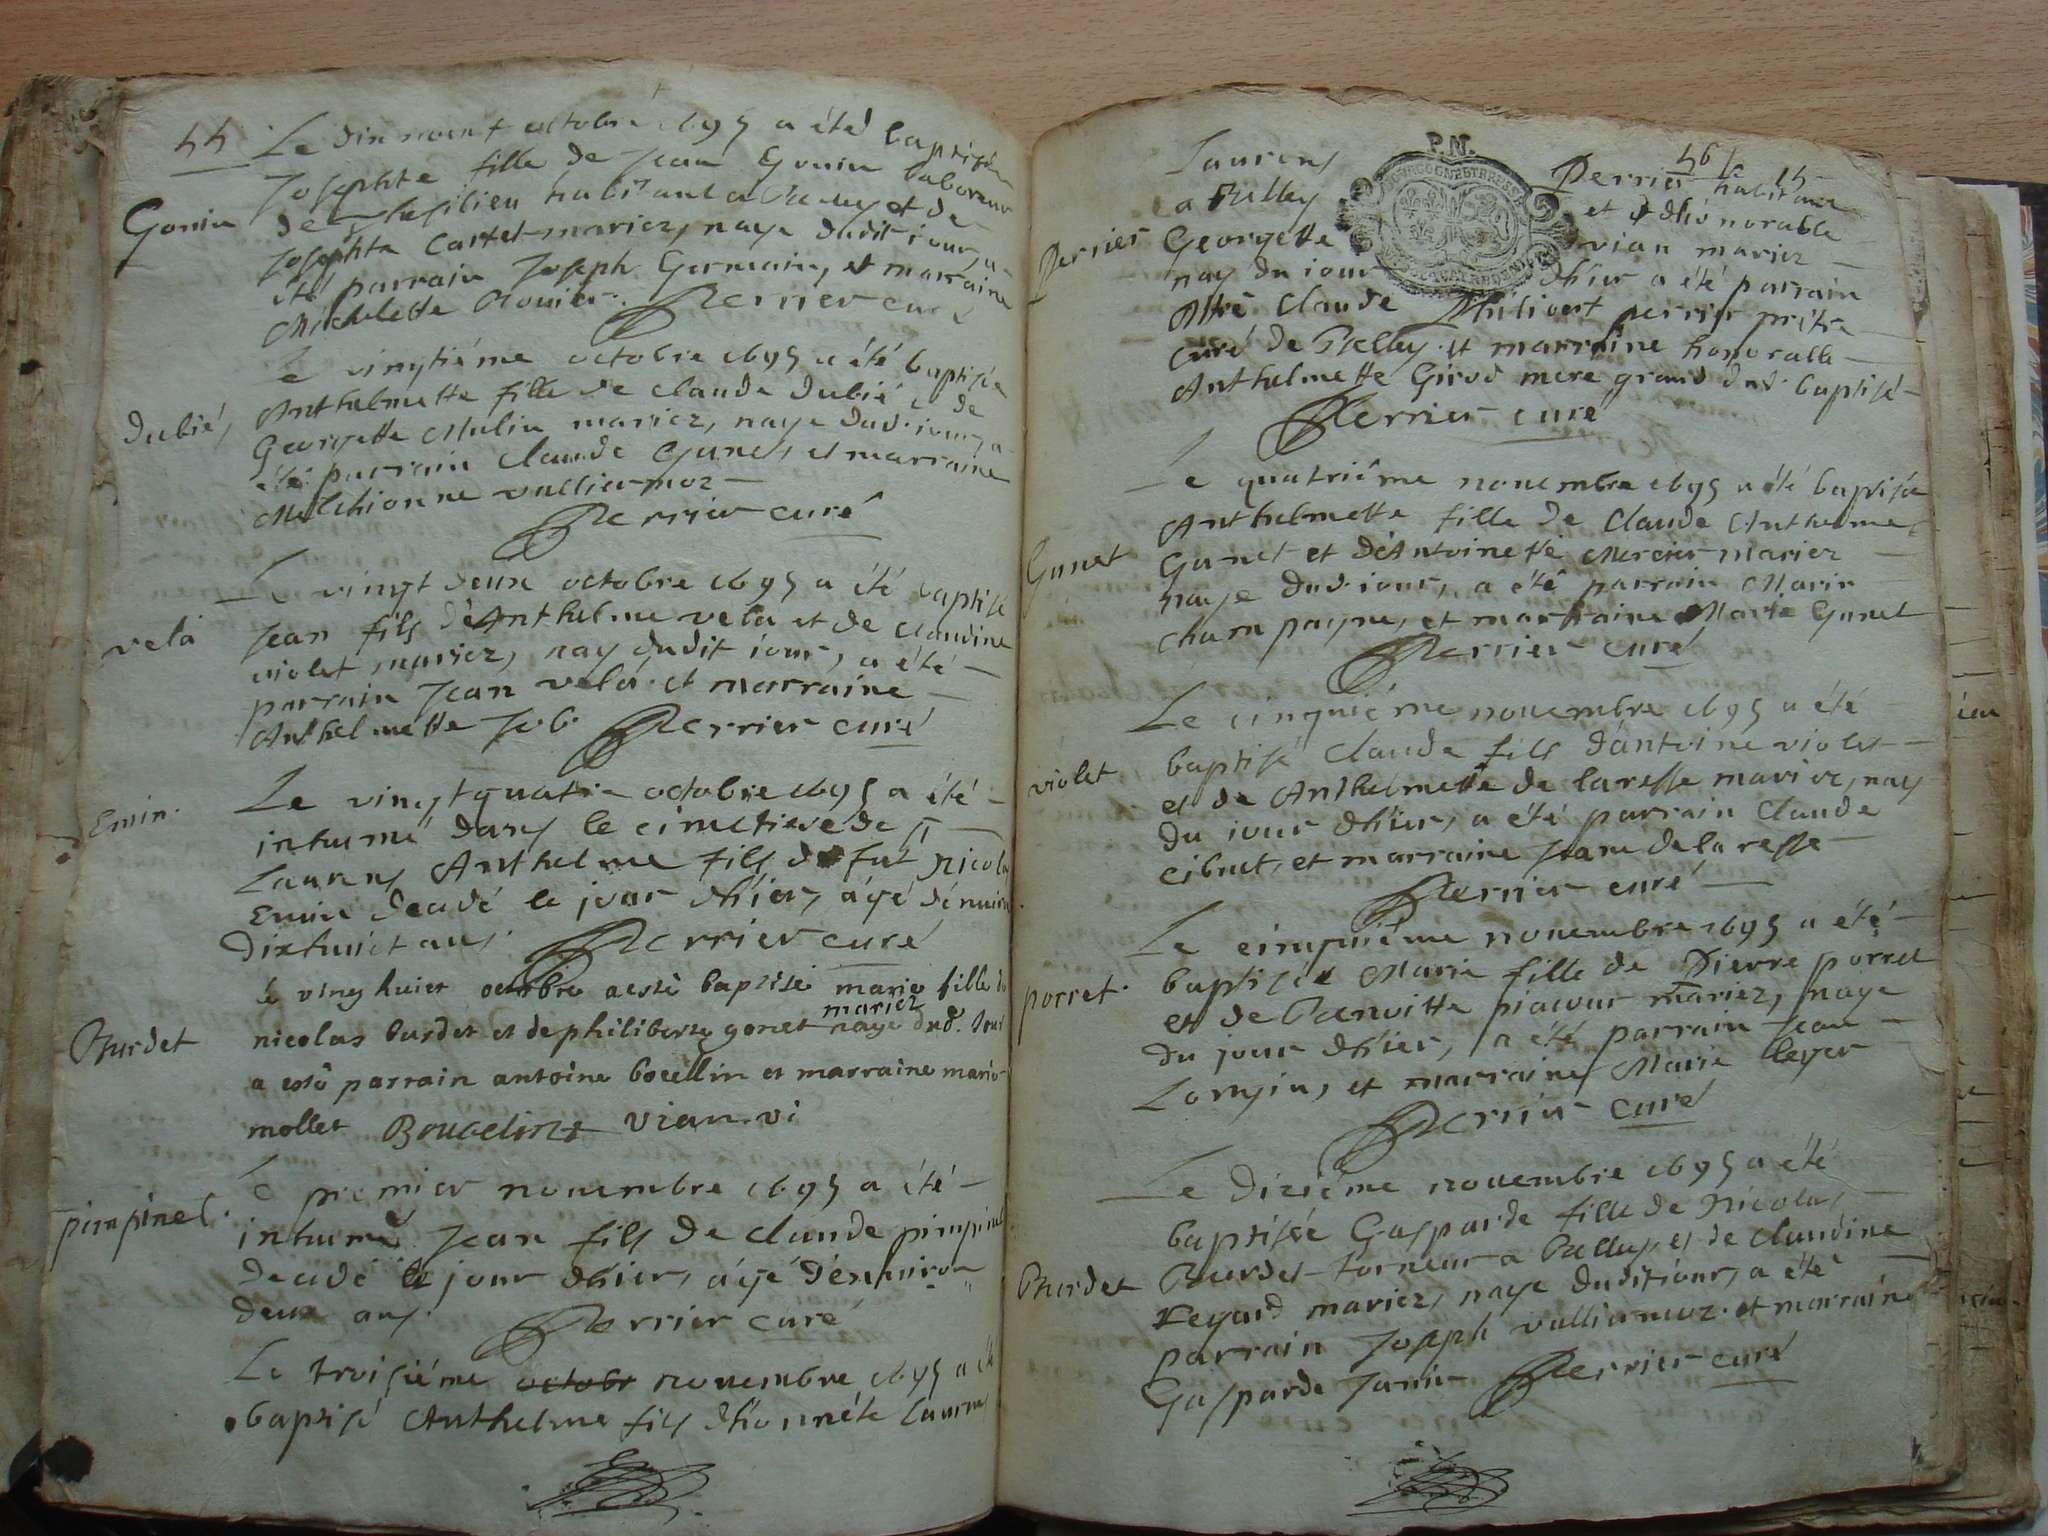 44
Le dix nouf octobre 1695 a été baptisée
Josephte fille de Jean Gonin laboreur
de habitant a et de
Gonin
Josephte Cartet mariez, naye dudit iour, a
été parrain Joseph Germain, et marraine
Michelette Perrier curé
Le vingtiéme octobre 1695 a été baptisée
Anthelmette fille de claude dubié & de
dubié
Georgette Mulin mariez, naye dud. iour, a
été parrain claude Gunet, et marraine
Melchionne valliermoz
Perrier curé
Le vingt deux octobre 1695 a été baptisé
Jean fils d'Anthelme vela et de claudine
vela
violet, mariez, nay dudit iour, a été
parrain Jean vela et marraine
Anthelmette Job Perrier curé
Le vingtquatre octobre 1695 a été
Emin.
inhumé dans le cimetiere de St
Laurens Anthelme fils de fut Nicolas
Emin decedé le jour d'hier, agé d'enuiron
dixhuict ans. Perrier curé
le ving huict octobre a esté baptisé marie fille de
mariez
Burdet
nicolas burdet et de philiberte gonet naye dud. Jour
a esté parrain antoine bocellin et marraine marie
mollet Boucelin vian. vi
Le premier nouembre 1695 a été
pimpinel.
inhumé Jean fils de claude pimpinel
decedé le jour d'hier, agé d'enuiron
deux ans. Perrier curé
Le troisiéme octobr nouembre 1695 a été
baptisé Anthelme fils d'honnéte Laurens
46
15
P.N.
Laurens Perrier habitant
a Belley et d'honorable
Perrier
Georgette vian mariez
nay du iour d'hier a été parrain
Mre Claude Philibert perrier prétre
curé de Belley et marraine honorable
Anthelmette Girod mere grand dud. baptisé
Perrier curé
Le quatriéme nouembre 1695 a été baptisée
Anthelmette fille de Claude Anthelme
Gunet
Gunet et d'Antoinette Mercier mariez
naye dud. iour, a été parrain Marin
champagne, et marraine Marie Gunet
Perrier curé
Le cinquiéme nouembre 1695 a été
baptisé Claude fils d'antoine violet
violet
et de Anthelmette de laresse mariez, nay
du iour d'hier, a été parrain Claude
cibuet, et marraine Jeane de la resse
Perrier curé
Le cinquiéme nouembre 1695 a été
baptisée Marie fille de Pierre porret
porret.
et de Benoitte piacour mariez, naye
du jour d'hier, a été parrain Jean
Longin, et marraine Marie
Perrier curé
Le diziéme nouembre 1695 a été
baptisée Gasparde fille de Nicolas
Burdet
Burdet torneur a Belley, et de claudine
Reyard mariez, naye dudit iour, a été
parrain Joseph valliermoz et marraine
Gasparde Janin Perrier curé